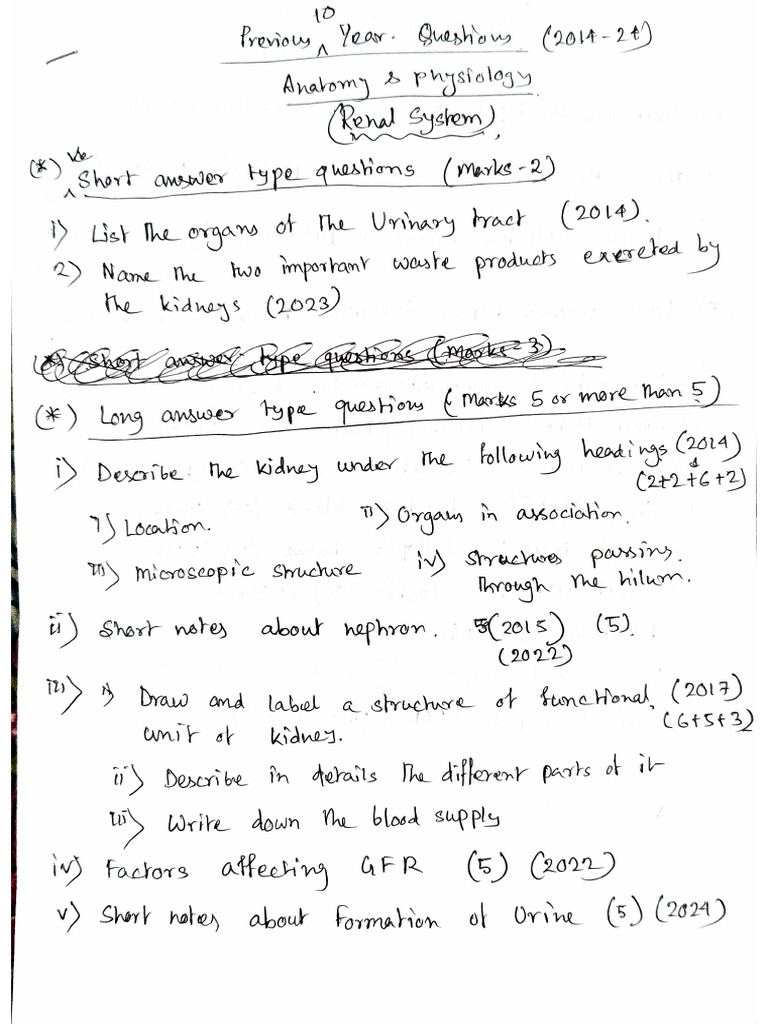 Previous 10 Year. Questions (2014-24)
Anatomy & physiology
(Renal System)
(*) Ve Short answer type questions (Marks-2)
i) List the organs of the Urinary tract (2014).
2) Name the two important waste products excreted by
the kidneys (2023)
(*) Short answer type questions (Marks-3)
(*) Long answer type questions (Marks 5 or more than 5)
i) Describe the kidney under the following headings (2014)
(2+2+6+2)
i) Location. ii) Organs in association.
iii) Microscopic structure iv) structures passing.
through the hilum.
ii) Short notes about nephron. (2015) (5).
(2022)
iii) i) Draw and label a structure of functional (2017)
unit of kidney. (6+5+3)
ii) Describe in details the different parts of it
iii) Write down the blood supply
iv) Factors affecting GFR (5) (2022)
v) Short notes about formation of Urine (5) (2024)